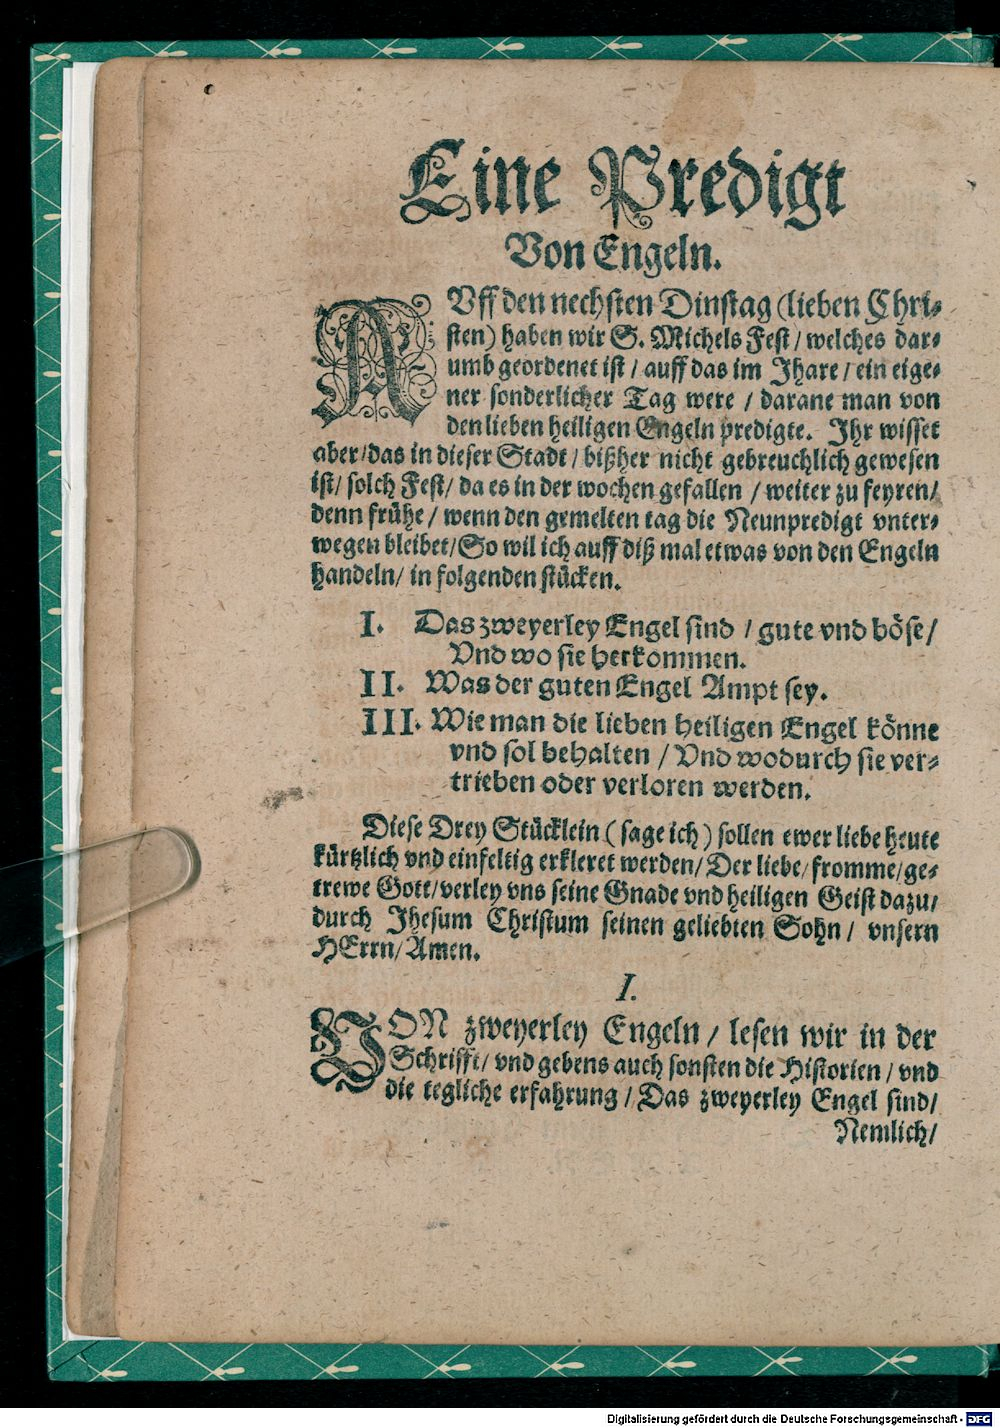 Eine Predigt
Von Engeln.
AUff den nechsten Dinstag (lieben Chri⸗
sten) haben wir S. Michels Fest / welches dar⸗
umb geordenet ist / auff das im Jhare / ein eige⸗
ner sonderlicher Tag were / darane man von
den lieben heiligen Engeln predigte. Jhr wisset
aber / das in dieser Stadt / bißher nicht gebreuchlich gewesen
ist / solch Fest / da es in der wochen gefallen / weiter zu feyren /
denn frühe / wenn den gemelten tag die Neunpredigt vnter⸗
wegen bleibet / So wil ich auff diß mal etwas von den Engeln
handeln / in folgenden stücken.
I. Das zweyerley Engel sind / gute vnd böse /
Vnd wo sie herkommen.
II. Was der guten Engel Ampt sey.
III. Wie man die lieben heiligen Engel könne
vnd sol behalten / Vnd wodurch sie ver⸗
trieben oder verloren werden.
Diese Drey Stücklein (sage ich) sollen ewer liebe heute
kürtzlich vnd einfeltig erkleret werden / Der liebe / fromme / ge⸗
trewe Gott / verley vns seine Gnade vnd heiligen Geist dazu /
durch Jhesum Christum seinen geliebten Sohn / vnsern
HErrn / Amen.
I.
VON zweyerley Engeln / lesen wir in der
Schrifft / vnd gebens auch sonsten die Historien / vnd
die tegliche erfahrung / Das zweyerley Engel sind /
Nemlich /
Digitalisierung gefördert durch die Deutsche Forschungsgemeinschaft - DFG